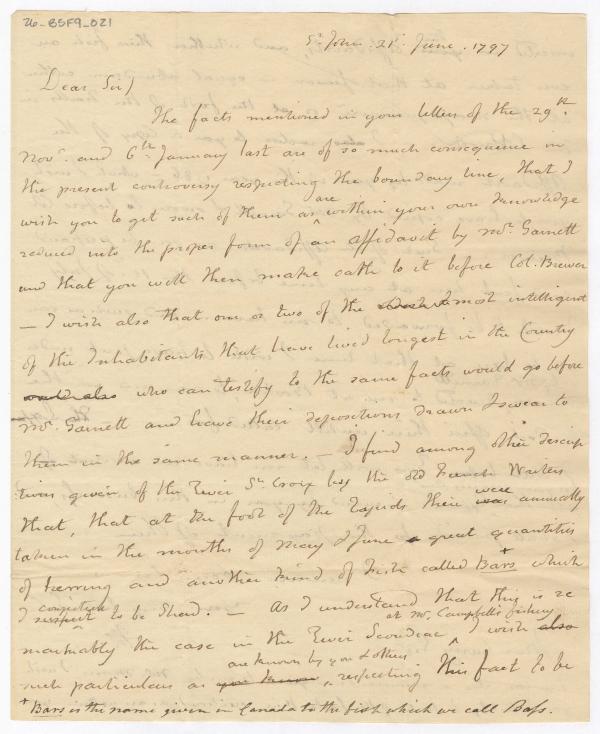 26-B5F9_021
St. John 21st June. 1797
Dear Sir/
The facts mentioned in your letters of the 29th.
Novr. and 6th January last are of so much consequence in
the present controversy respecting the boundary line, that I
wish you to get such of them as are within your own knowledge
reduced into the proper form of an affidavit by Mr. Garnett
and that you will then make oath to it before Col. Brewer
— I wish also that one or two of the most intelligent
of the Inhabitants that have lived longest in the Country
who can testify to the same facts would go before
Mr. Garnett and have their depositions drawn & swear to
them in the same manner. — I find among other descrip
tions given of the River St. Croix by the old French Writers
that, that at the foot of the Rapids there were was annually
taken in the months of May & June a great quantities
of herring and another kind of fish called Bars + which
I conjecture suspect to be Shad. — As I understand that this is re
markably the case in the River Scoudeac at Mr. Campbell's fishery I wish also
such particulars as are known by you & others you know respecting this fact to be
+ Bars is the name given in Canada to the fish which we call Bass.